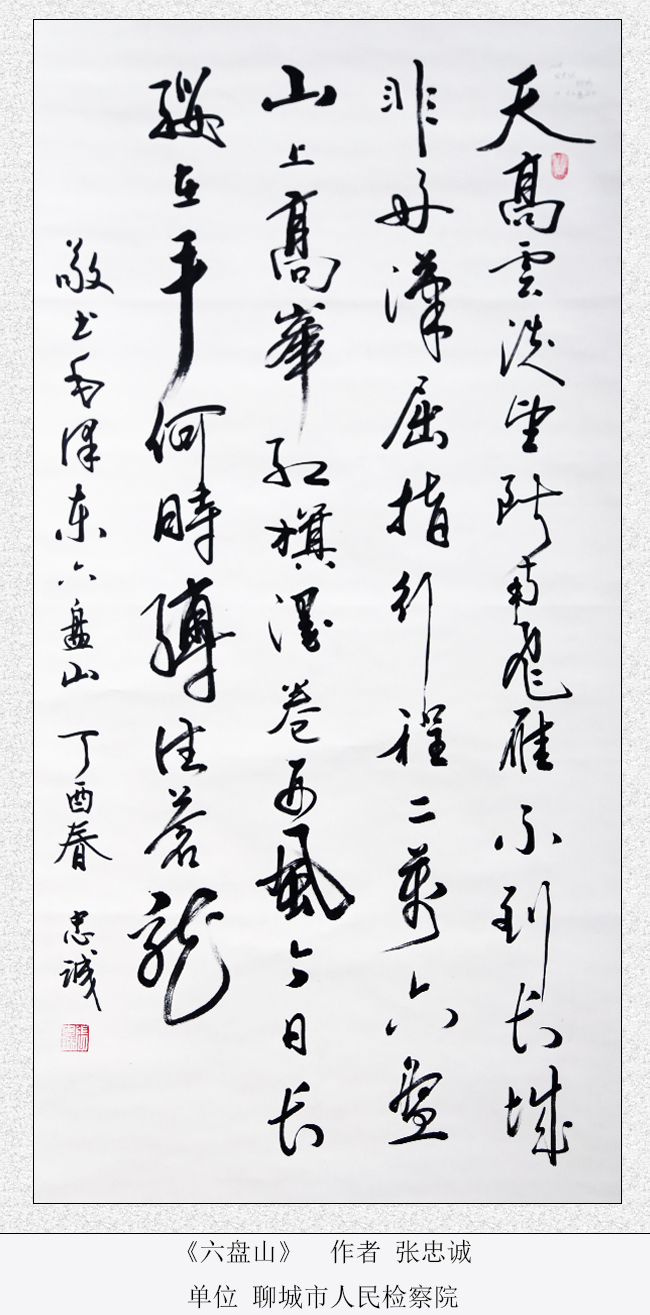 天髙雲淡望断南飛雁不到长城
非好漢屈指行程二萬六盘
山上髙峯红旗漫卷西風今日长
纓在手何時縛住蒼龍
敬书毛泽东六盘山 丁酉春 忠誠
《六盘山》 作者 张忠诚
单位 聊城市人民检察院